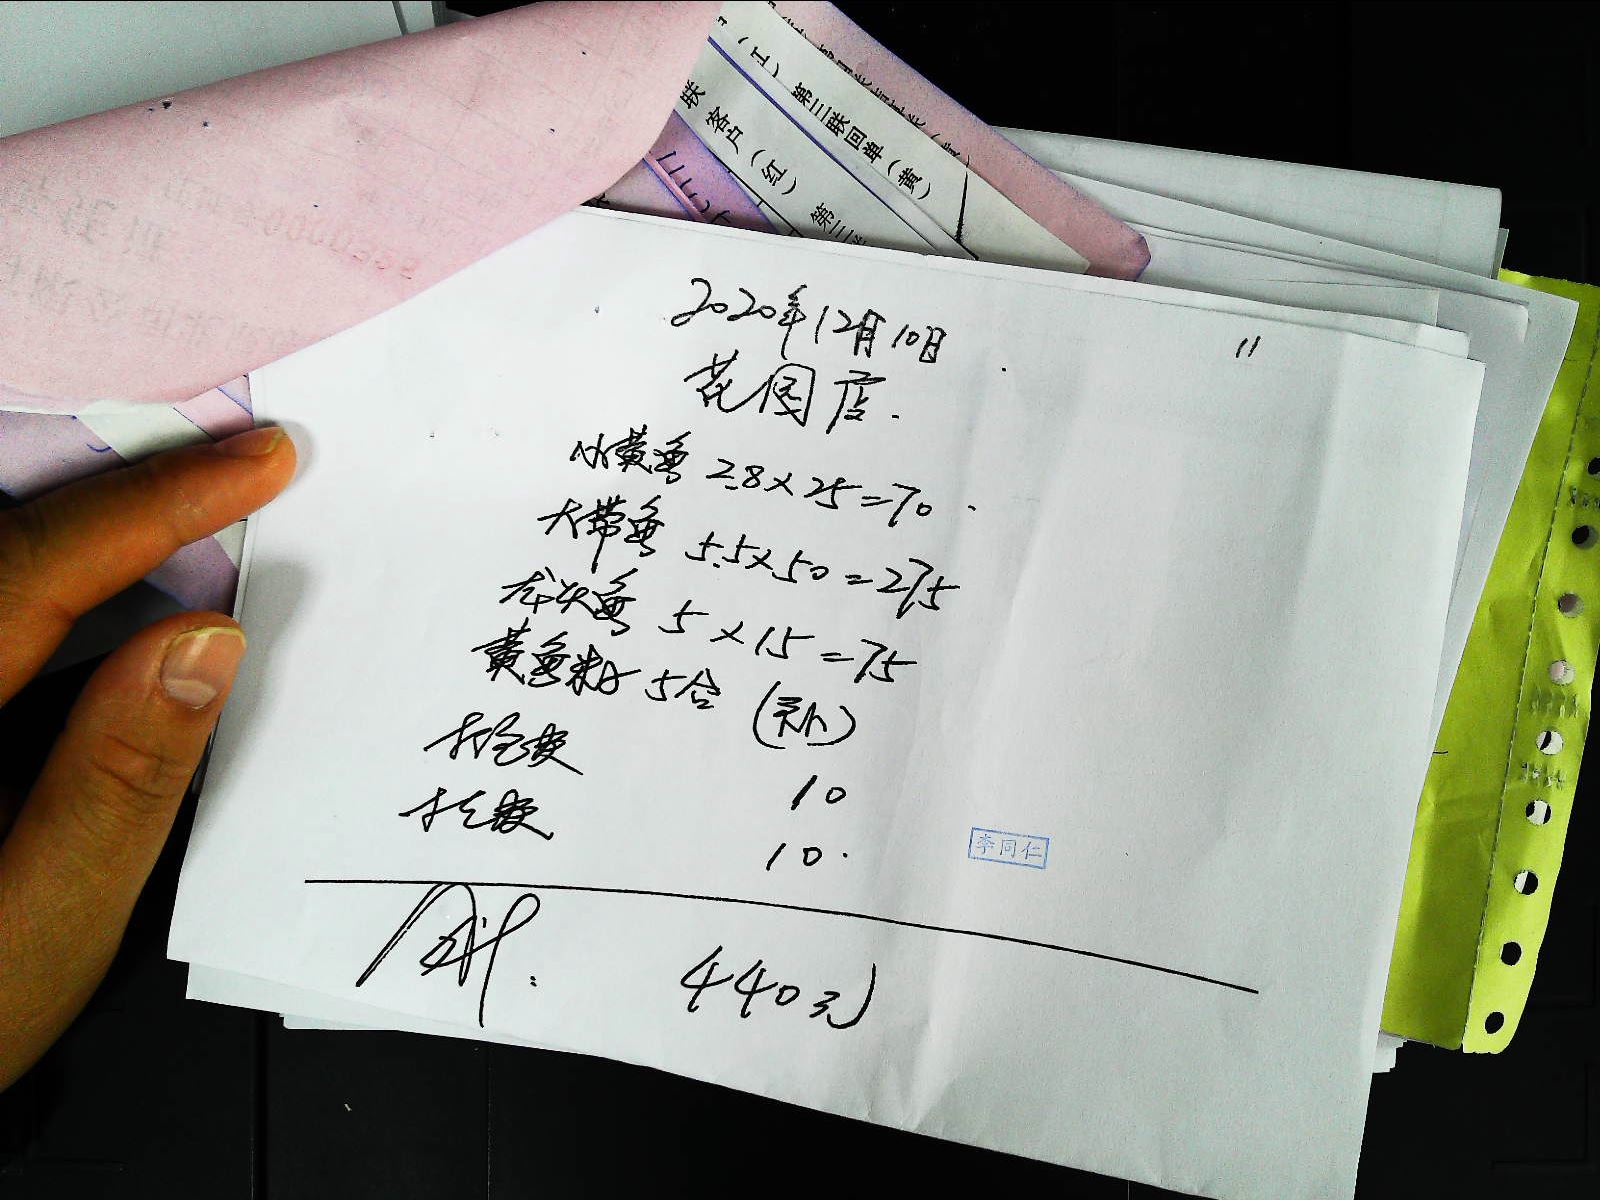 (红) 第三联回单(黄)
联 客户(红) 第三
2020年12月10日
11
花园店.
小黄鱼 2.8×25=70.
大带鱼 5.5×50=275
龙头鱼 5×15=75
黄鱼 5合 (补)
10
10.
李同仁
合计: 440元